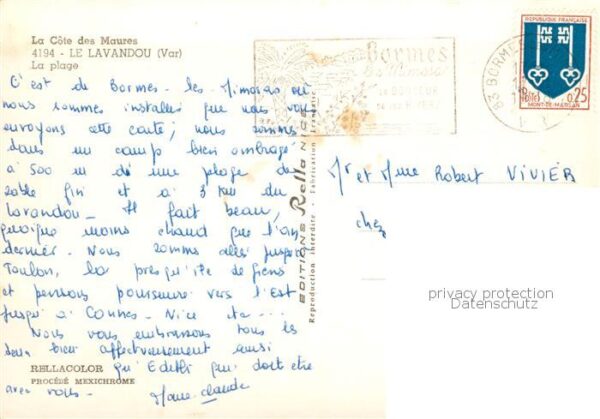 La Côte des Maures
4194 - LE LAVANDOU (Var)
La plage
C'est de Bormes-les-Mimosas où
nous sommes installés que nous vous
envoyons cette carte; nous sommes
dans un camp bien ombragé
à 500 m de une plage de
sable fin et à 3 km du
Lavandou - Il fait beau,
quoique moins chaud que l'an
dernier - Nous sommes allés jusqu'à
Toulon, la presqu'île de Giens
et pensons poursuivre vers l'Est
jusqu'à Cannes - Nice etc...
Nous vous embrassons tous les
deux bien affectueusement ainsi
qu'Edith qui doit être
avec vous - Marie-Claude
RELLACOLOR
PROCÉDÉ MEXICHROME
EDITIONS Rella NICE
Reproduction interdite - Fabrication Française
Bormes
les mimosas
SA DOUCEUR
83 BORMES
REPUBLIQUE FRANÇAISE
0,25
MONT-DE-MARSAN
Mr et Mme Robert VIVIER
chez
privacy protection
Datenschutz